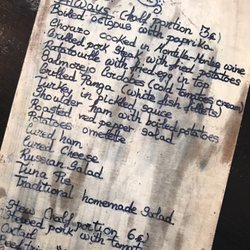 Water (half portion 3€)
Boiled octopus with paprika
Chorizo cooked in Montilla-Moriles wine
Grilled pork with fried potatoes
Ratatouille with fried egg in top
Salmorejo Cordobes (cold tomatoes cream)
Grilled Panga (white fish fillets)
Turkey in pickled sauce
Shoulder ham with baked potatoes
Roasted red pepper salad
Potatoes omelette
Cured ham
Cured cheese
Russian Salad
Tuna Pie
Traditional homemade salad
Stew (half portion 6€)
pork with